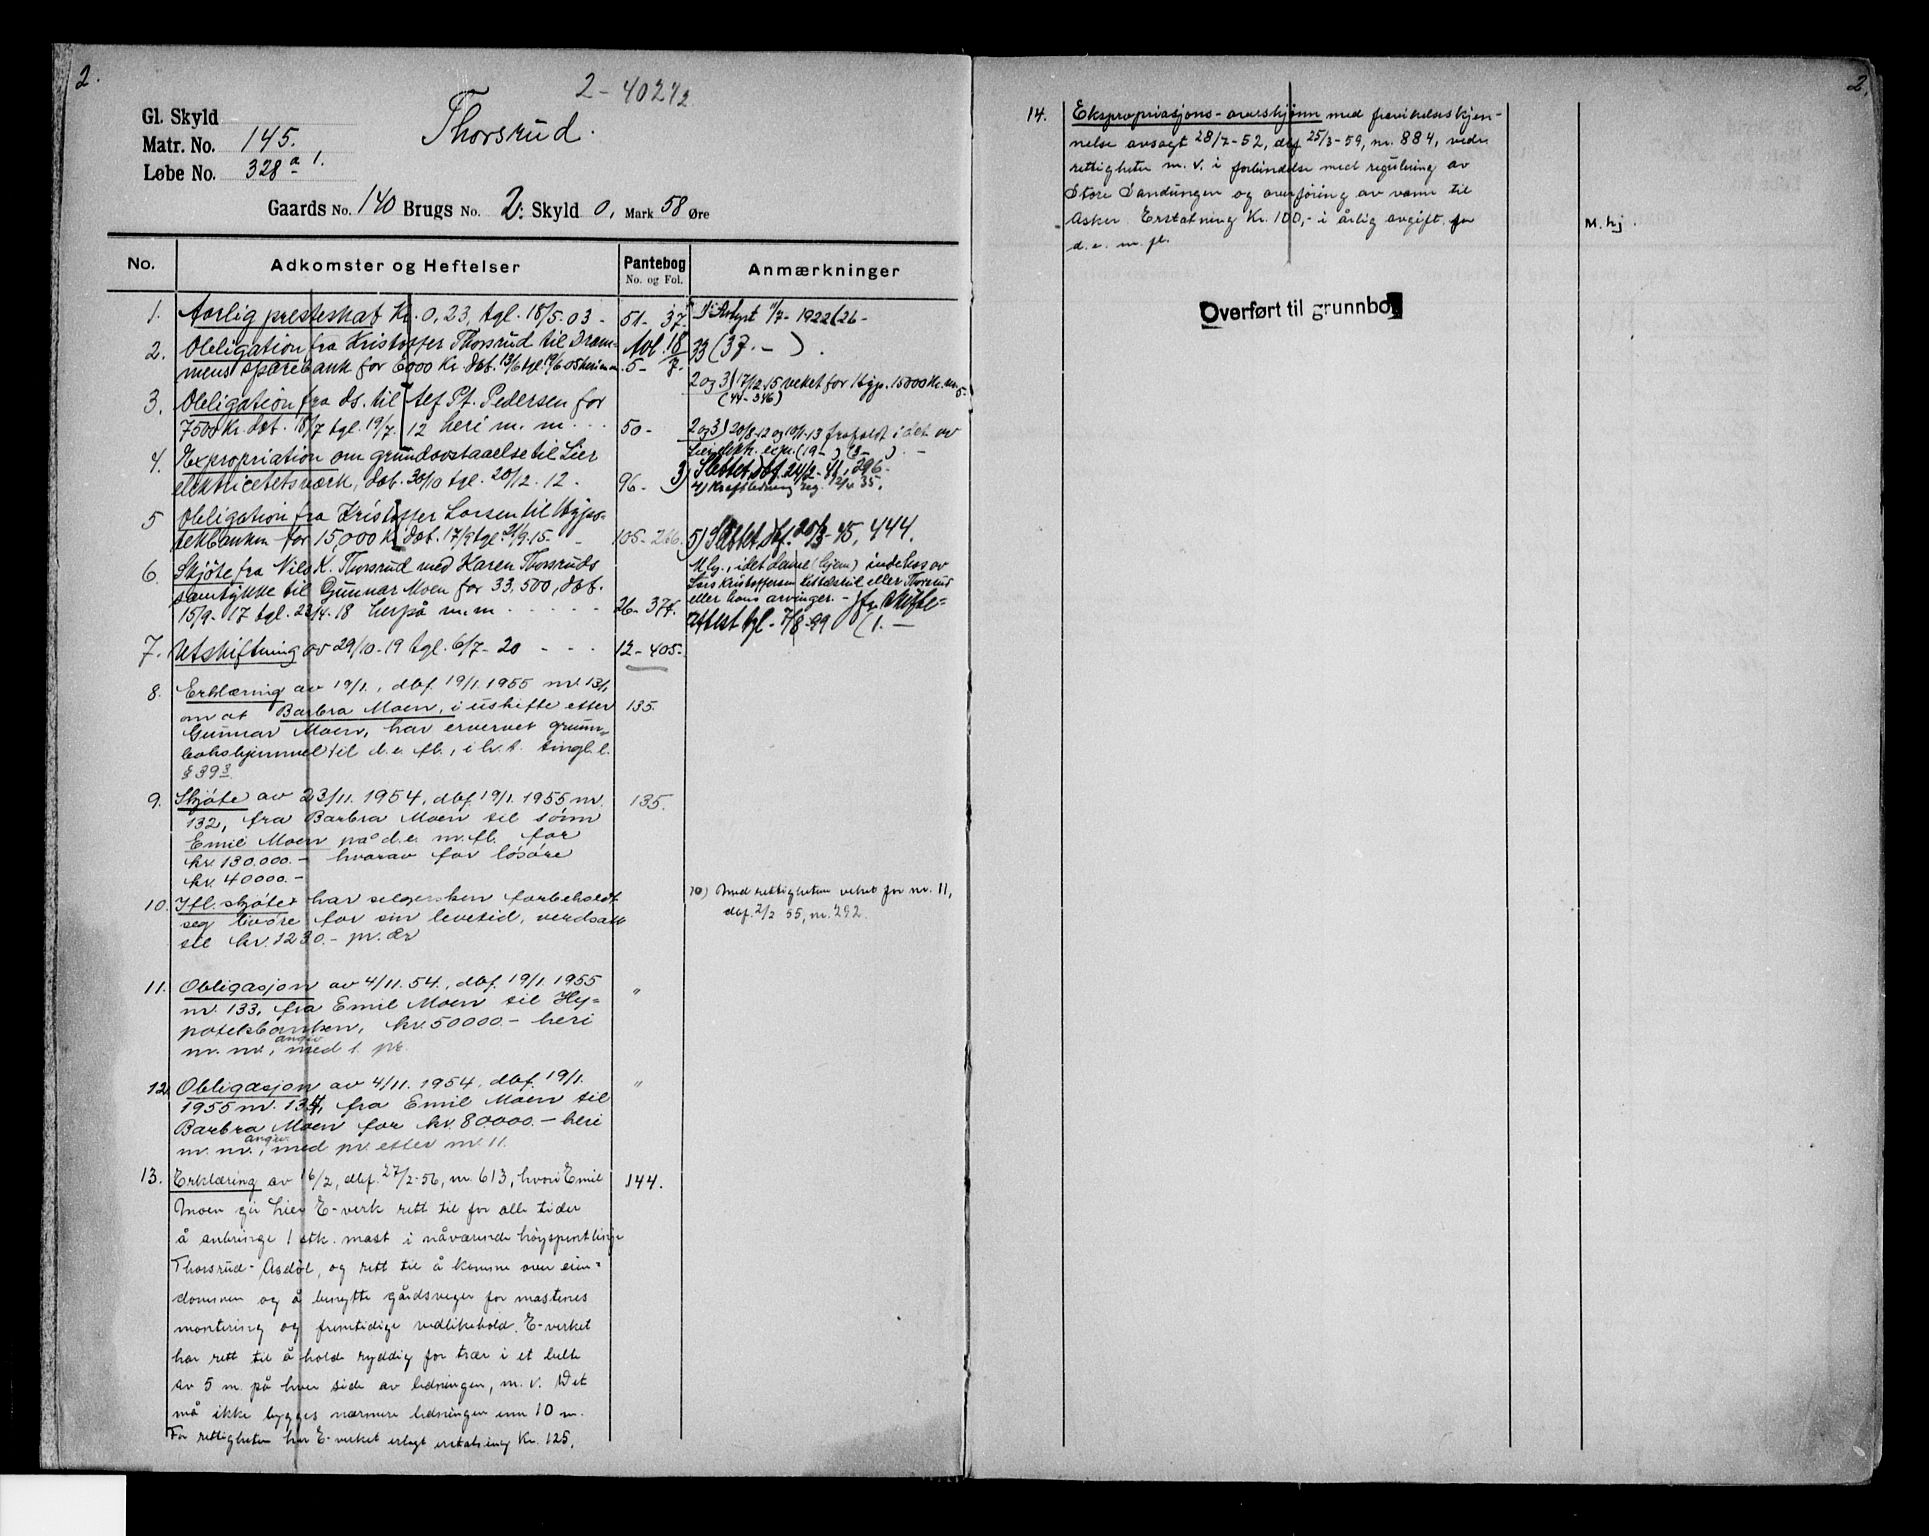 2.
2-40242
Gl. Skyld
Matr. No. 145.
Thorsrud.
Løbe No. 328 a 1.
Gaards No. 140 Brugs No. 2: Skyld 0, Mark 58 Øre
No. Adkomster og Heftelser Pantebog No. og Fol. Anmærkninger
1. Aarlig presteskat Kr. 0,23, tgl. 18/5.03 - 51- 37. 1) Avlyst 11/7- 1922 (26-
2. Obligation fra Kristoffer Thorsrud til Dram- Avl. 18/7 (37. - ).
mens sparebank for 6000 Kr. dat. 13/6 tgl. 19/6 05 heri m.m. 5- 7.
2 og 3) 17/12.15 veket for Hyp. 15000 Kr. m.
(44-346)
3. Obligation fra ds. til Pt. Pedersen for
7500 Kr. dat. 18/7 tgl. 19/7. 12 heri m. m. . . 50-
2 og 3) 20/8-12 og 10/1-13 frafaldt i det av
Lier elekt. exp. (19- ) (3- ). -
4. Expropriation om grundavstaaelse til Lier
elektricitetsværk, dat. 30/10 tgl. 20/12. 12. 96-
3) Slettet dbf. 24/2-41, 296.
4) Kraftledning reg. 2/4 35.
5 Obligation fra Kristoffer Larsen til Hypo-
tekbanken for 15,000 Kr. dat. 17/9 tgl 21/9.15. - 105-266.
5) Slettet dbf. 20/3-45, 444.
6. Skjøte fra Nils K. Thorsrud med Karen Thorsruds
samtykke til Gunnar Moen for 33.500, dat.
15/9-17 tgl. 23/4-18 herpå m.m . . . . 26-374.
Lars Kristoffersen eller Thorsrud
eller hans arvinger. - jfr. skifte-
attest tgl. 7/8-99 (1. -
7. Utskiftning av 29/10-19 tgl. 6/7-20 - - - 12-405-
8. Erklæring av 19/1., dbf. 19/1.1955 nr. 131,
om at Barbra Moen, i uskifte etter 135.
Gunnar Moen, har ervervet grunn-
bokshjemmel til d.e. fl., i h.t. tingl.l.
§ 39 3.
9. Skjøte av 23/11.1954, dbf. 19/1.1955, nr. 135.
132, fra Barbra Moen til sønn
Emil Moen på d.e. m.fl. for
kr. 130.000.- hvorav for løsøre
kr. 40000.-
10. Ifl. skjøtet har selgersken forbeholdt
seg livøre for sin levetid, verdsatt
til kr. 1230.- pr. år
10) Med rettigheten veket for nr. 11,
dbf. 2/2 55, nr. 292.
11. Obligasjon av 4/11.54., dbf. 19/1.1955 "
nr. 133, fra Emil Moen til Hy-
potekbanken, kr. 50000.- heri
m. m., angiv. med 1. pr.
12. Obligasjon av 4/11.1954, dbf. 19/1. "
1955 nr. 134, fra Emil Moen til
Barbra Moen for kr. 80000.- heri
m. m., angiv. med pr. etter nr. 11.
13. Erklæring av 16/2, dbf. 27/2-56, nr. 613, hvori Emil 144.
Moen gir Lier E-verk rett til for alle tider
å anbringe 1 stk. mast i nåværende høyspentlinje
Thorsrud- Asdøl, og rett til å komme over eien-
dommen og å benytte gårdsveger for mastenes
montering og fremtidige vedlikehold. E-verket
har rett til å holde ryddig for trær i et belte
av 5 m. på hver side av ledningen, m. v. Det
må ikke bygges nærmere ledningen enn 10 m.
For rettigheten har E-verket erlagt erstatning Kr. 125,
2.
14. Ekspropriasjons-overskjønn med fravikelseskjen-
nelse avsagt 28/7-52, dbf 25/3-59, nr. 884, vedr.
rettigheter m. v. i forbindelse med regulering av
Store Sandungen og overføring av vann til
Asker. Erstatning Kr. 100,- i årlig avgift for
d. e. m. fl.
M. hj.
Overført til grunnbok